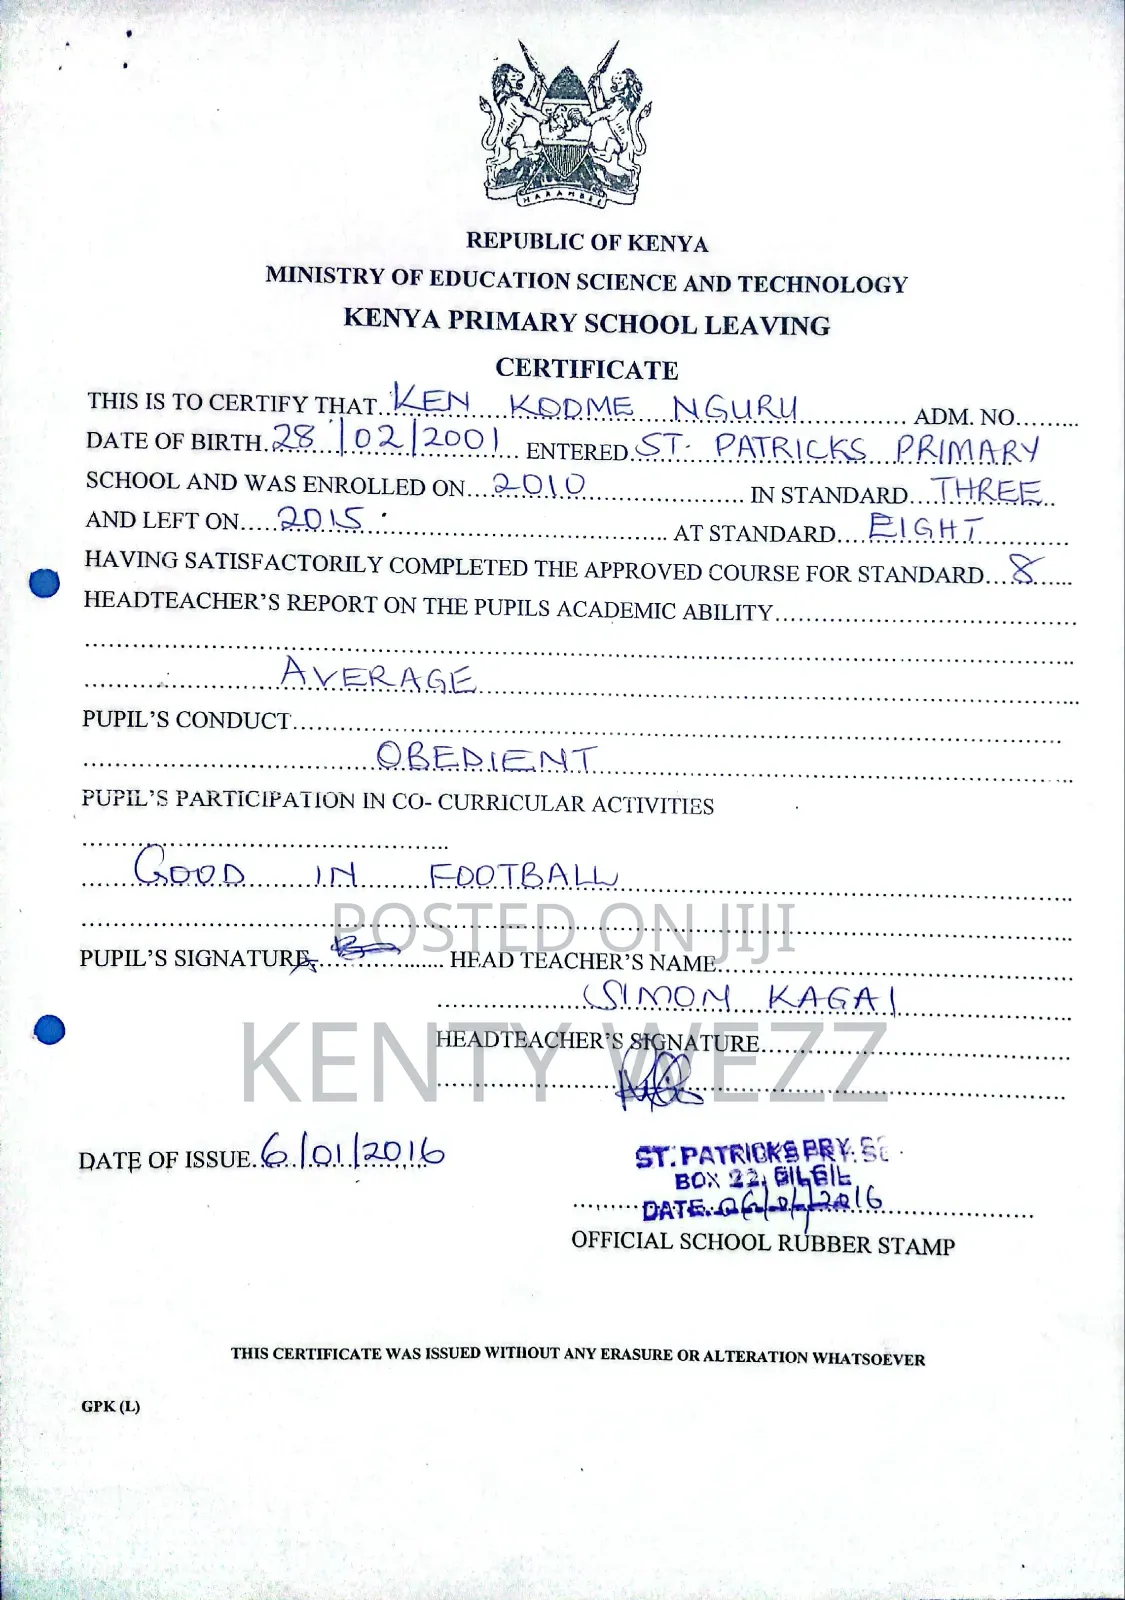 HARAMBEE
REPUBLIC OF KENYA
MINISTRY OF EDUCATION SCIENCE AND TECHNOLOGY
KENYA PRIMARY SCHOOL LEAVING
CERTIFICATE
THIS IS TO CERTIFY THAT KEN KODME NGURU ADM. NO.........
DATE OF BIRTH. 28/02/2001 ENTERED ST. PATRICKS PRIMARY
SCHOOL AND WAS ENROLLED ON... 2010 IN STANDARD... THREE
AND LEFT ON..... 2015 AT STANDARD.... EIGHT
HAVING SATISFACTORILY COMPLETED THE APPROVED COURSE FOR STANDARD... 8
HEADTEACHER'S REPORT ON THE PUPILS ACADEMIC ABILITY
AVERAGE
PUPIL'S CONDUCT
OBEDIENT
PUPIL'S PARTICIPATION IN CO- CURRICULAR ACTIVITIES
GOOD IN FOOTBALL
POSTED ON JIJI
PUPIL'S SIGNATURE HEAD TEACHER'S NAME
SIMON KAGAI
KENTY WEZZ
HEADTEACHER'S SIGNATURE
DATE OF ISSUE. 6/01/2016
ST. PATRICKS PRY. SC
BOX 22, GILGIL
DATE. 06/01/2016
OFFICIAL SCHOOL RUBBER STAMP
THIS CERTIFICATE WAS ISSUED WITHOUT ANY ERASURE OR ALTERATION WHATSOEVER
GPK (L)